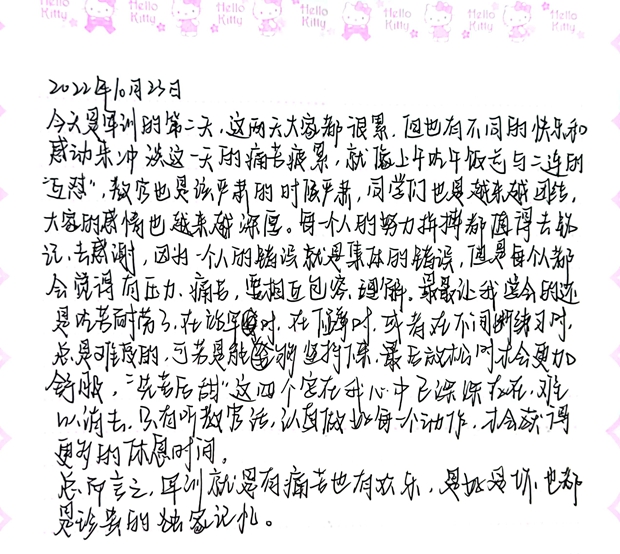 Hello Kitty Hello Kitty Hello Kitty Hello Kitty Hello Kitty Hello Kitty
2022年10月23日
今天是军训的第二天，这两天大家都很累，但也有不同的快乐和
感动来冲洗这一天的痛苦疲累，就像上午吃午饭前与二连的
"互怼"，教官也是该严肃的时候严肃，同学们也是越来越团结，
大家的感情也越来越深厚。每一个人的努力拼搏都值得去铭
记、去感谢，因为一个人的错误就是集体的错误，但是每个人都
会觉得有压力、痛苦，要相互包容、理解。最最让我学会的还
是吃苦耐劳了，在站军姿时，在下蹲时，或者在不间断练习时，
总是难受的，可若是能坚持下来，最后放松时才会更加
舒服，"先苦后甜"这四个字在我心中已深深存在，难
以消去。只有听教官话，认真做好每一个动作，才会获得
更多的休息时间。
总而言之，军训就是有痛苦也有欢乐，是好是坏，也都
是珍贵的独家记忆。